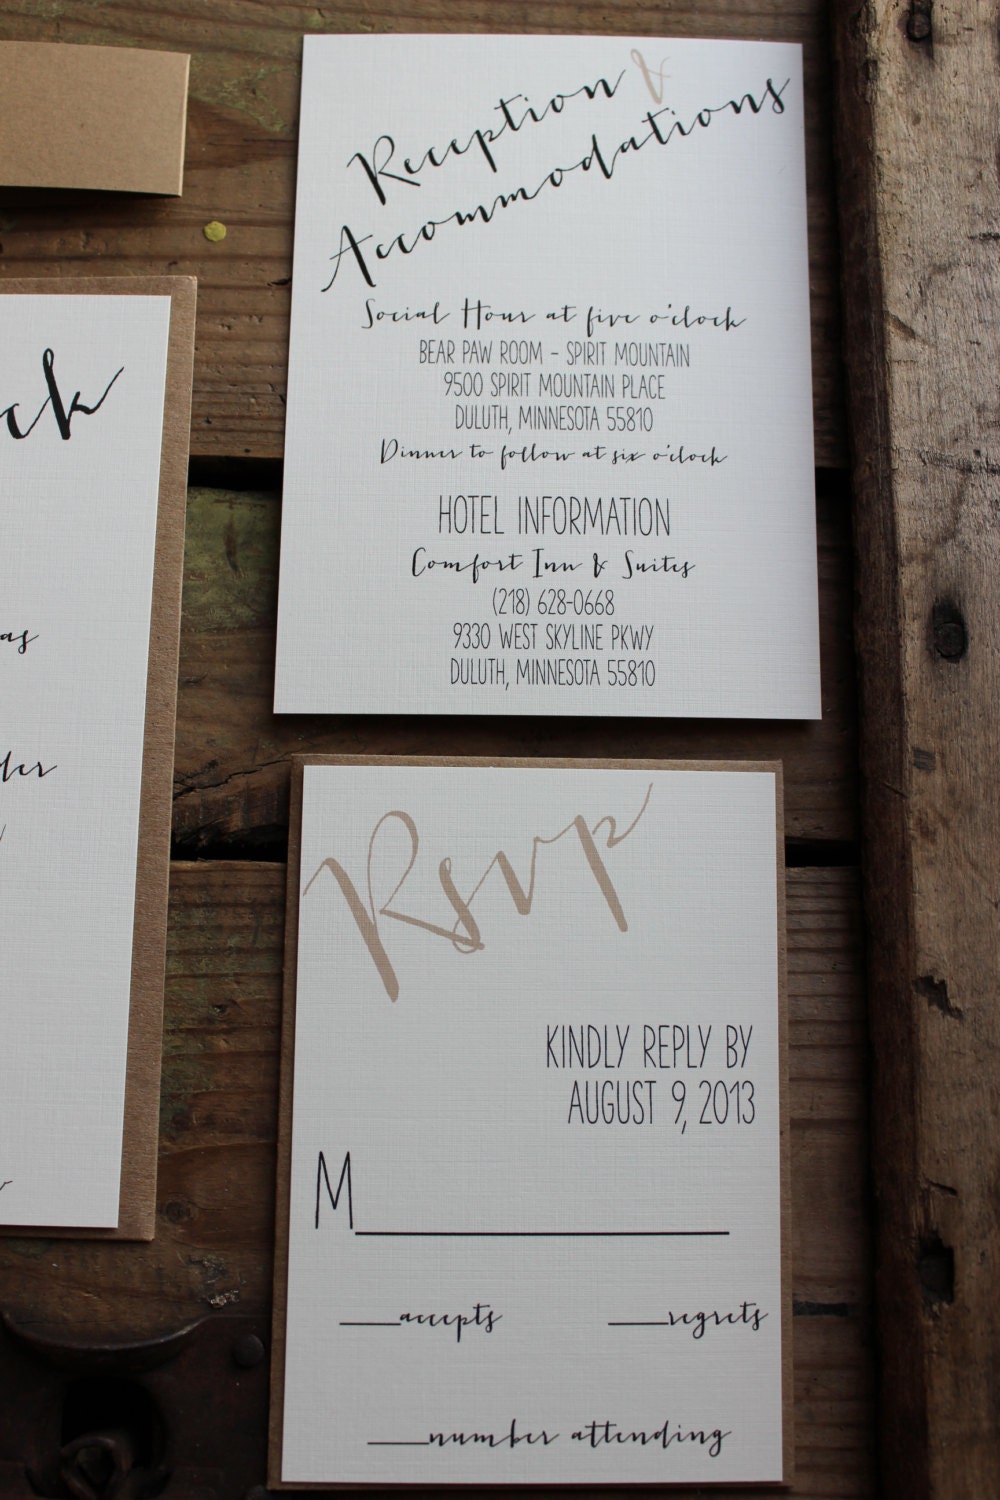 Reception &
Accommodations
Social Hour at five o'clock
BEAR PAW ROOM - SPIRIT MOUNTAIN
9500 SPIRIT MOUNTAIN PLACE
DULUTH, MINNESOTA 55810
Dinner to follow at six o'clock
HOTEL INFORMATION
Comfort Inn & Suites
(218) 628-0668
9330 WEST SKYLINE PKWY
DULUTH, MINNESOTA 55810
Rsvp
KINDLY REPLY BY
AUGUST 9, 2013
M
accepts
regrets
number attending